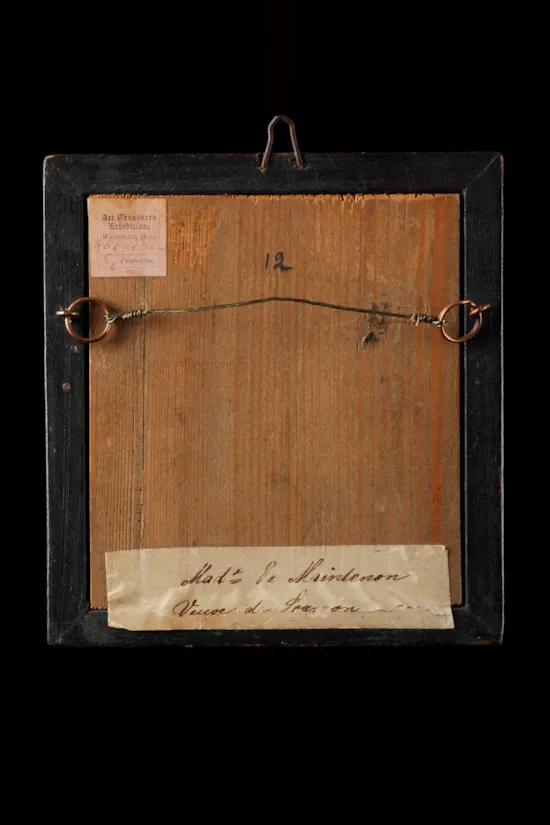 Art Treasures
Exhibition,
Proprietor.
12
Mad.e de Maintenon
Veuve de Scarron